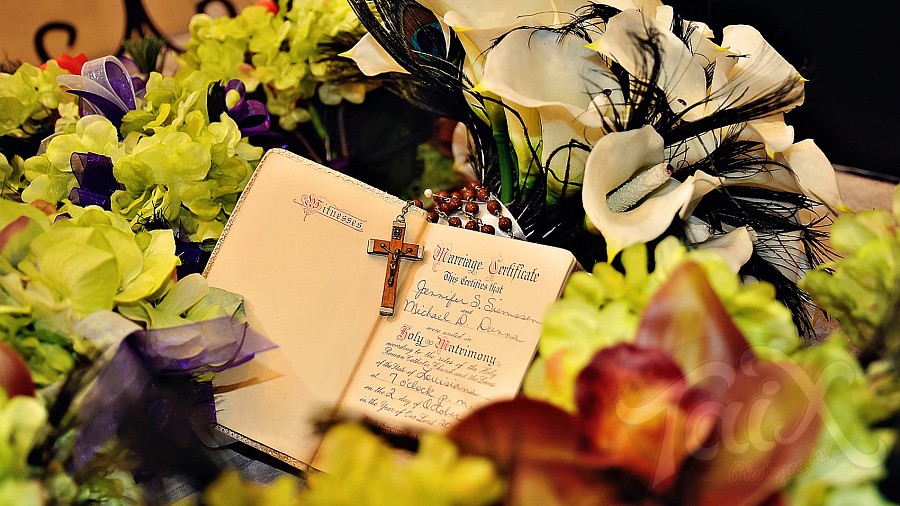 Witnesses
Marriage Certificate
This Certifies that
Jennifer S. Simssen
and
Michael D. Danna
were united in
Holy Matrimony
according to the Rite of the Holy
Roman Catholic Church and the Laws
of the State of Louisiana
at 7 o'clock P.M.
on the 2 day of October
in the Year of Our Lord 20
TaiX
Photography